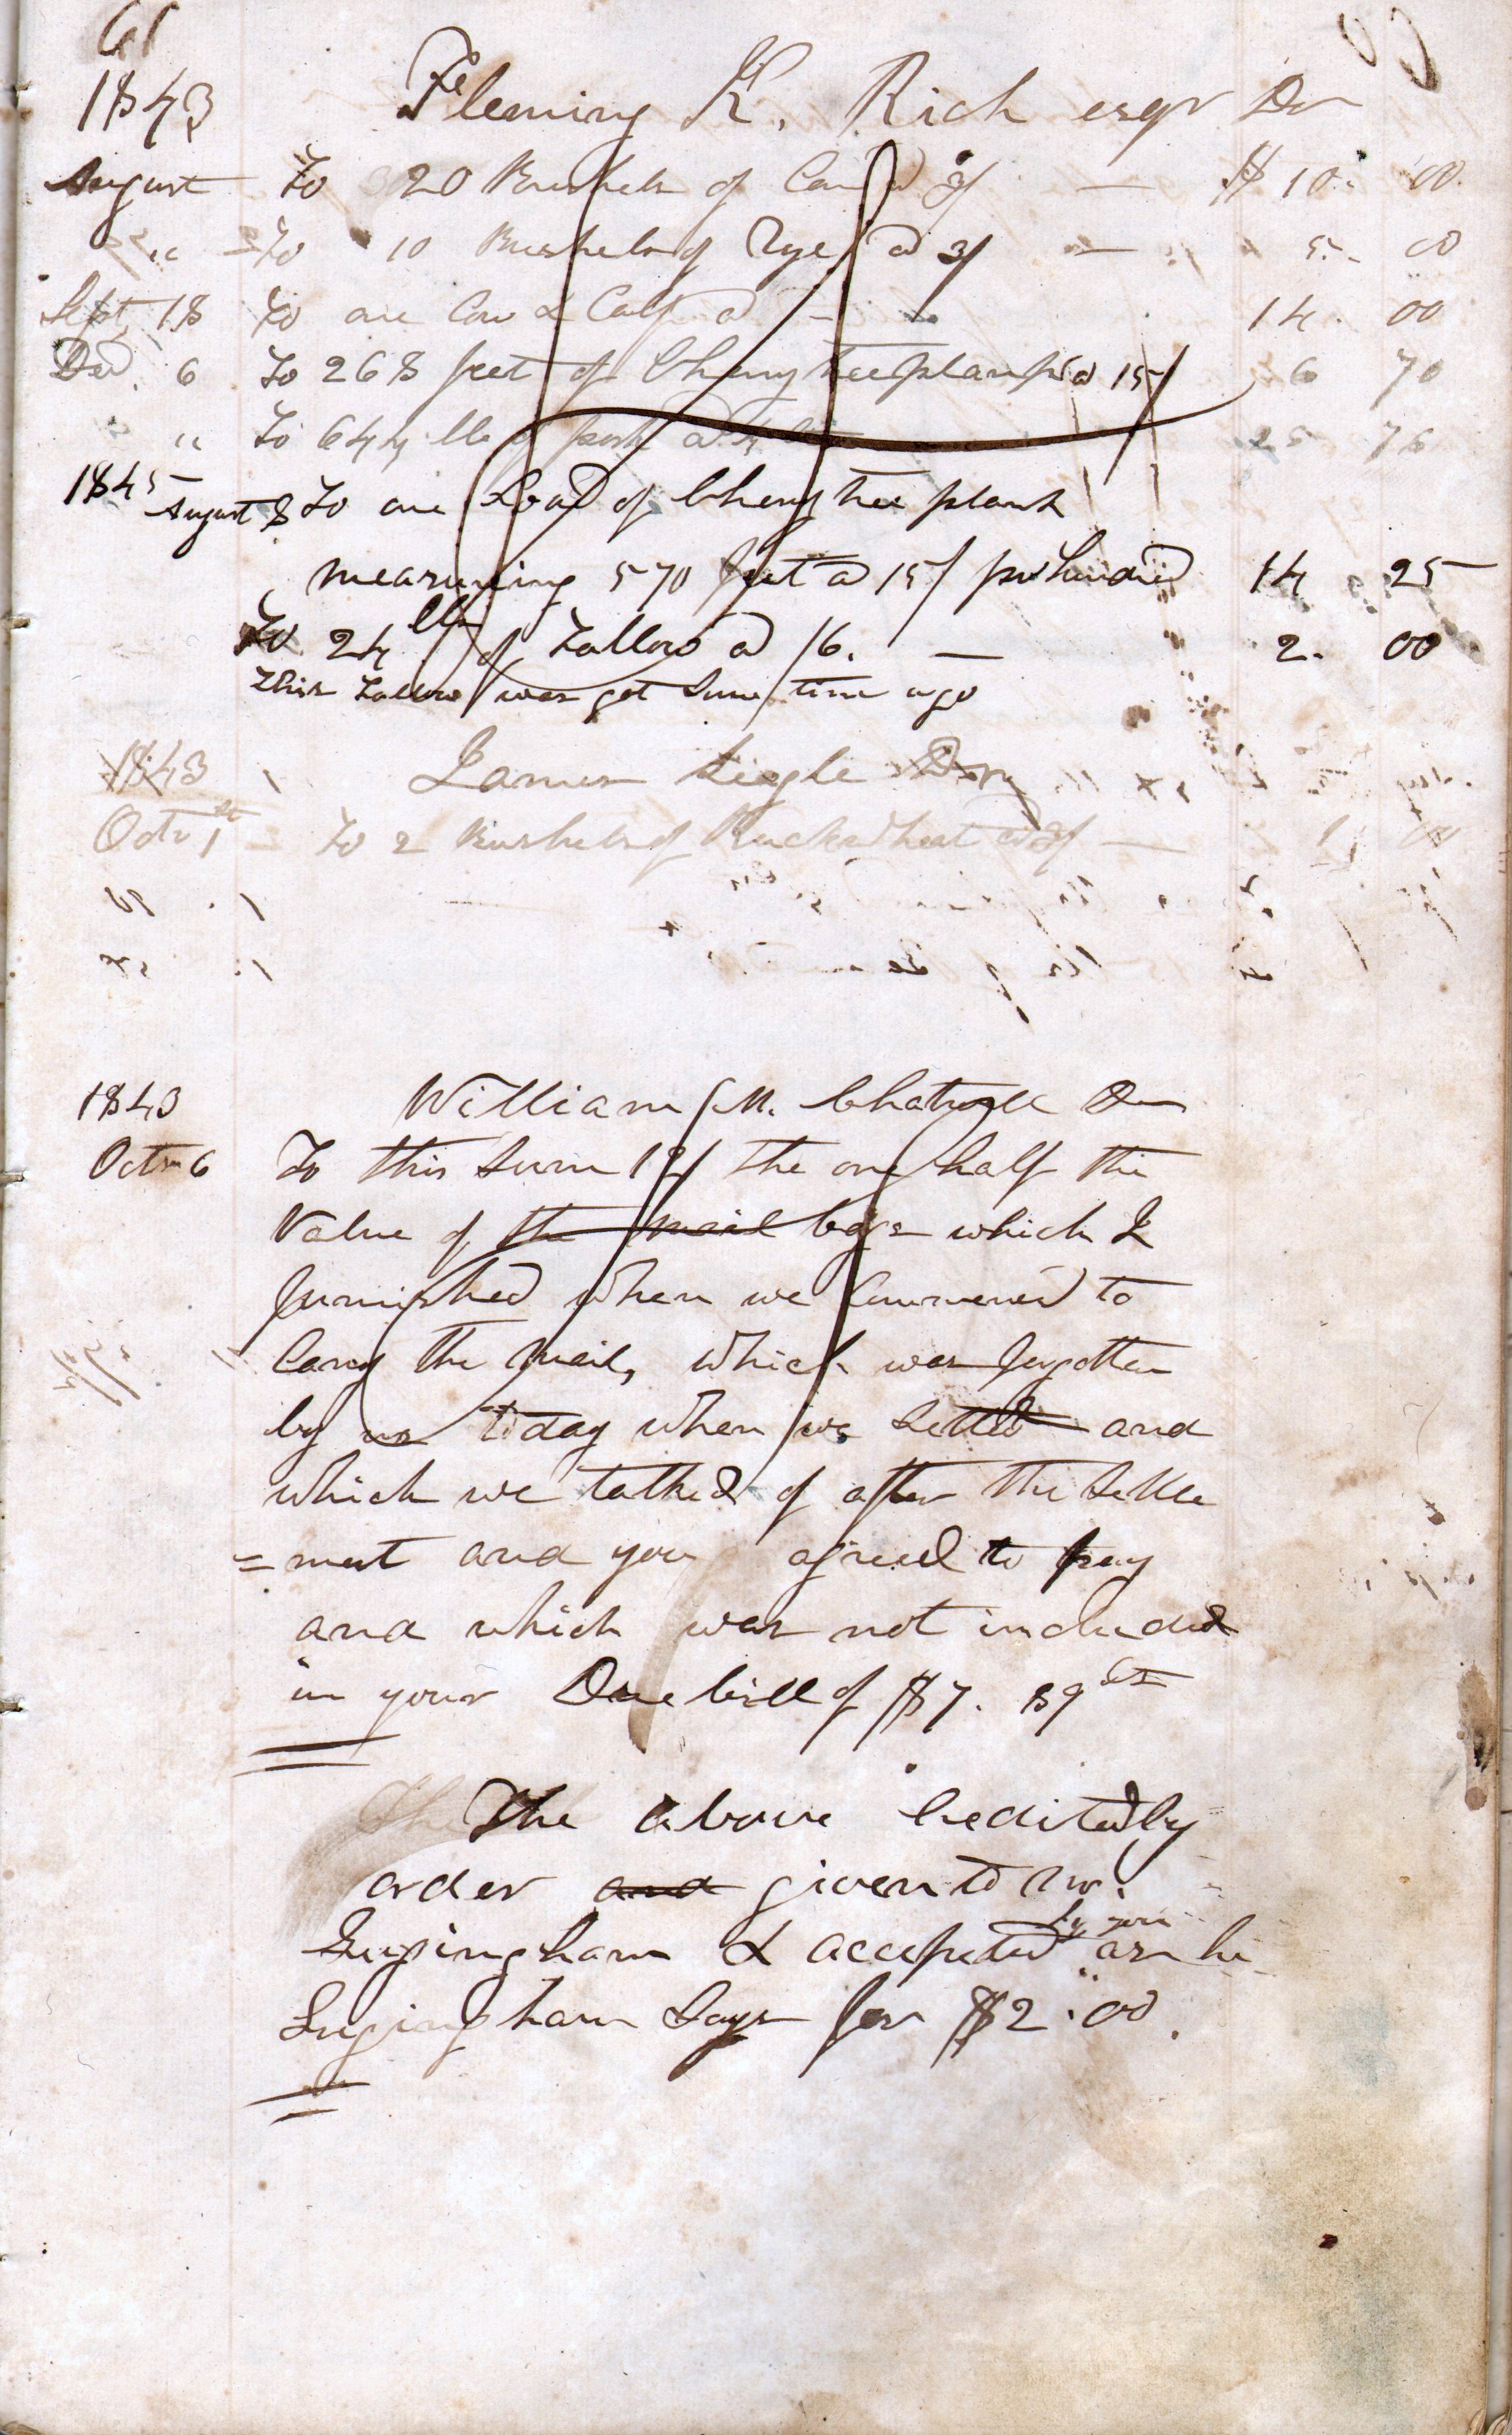 61
1843 Fleming K. Rich esqr Dr
August To 20 Bushels of Corn @ 3/ — $10. 00
" To 10 Bushels of Rye @ 3/ — 5. 00
Sept 18 To one Cow & Calf @ — 14. 00
Dec. 6 To 268 feet of Cherry tree plank @ 15/ 6 70
" To 644 lbs of pork @ 4 25 76
1845 August 8 To one Load of Cherry tree plank
measuring 570 feet @ 15/ pr hundred 14 25
To 24 lbs of Tallow @ /6. — 2. 00
This Tallow was got Some time ago
1843 James Dr
Octr 1st To 2 Bushels of Buckwheat @ 3/ — 1 00
1843 William M. Chatwell Dr
Octr 6 To this Sum 12/ the one half the
Value of the mail bags which I
furnished when we Commenced to
Carry the Mail, which was forgotten
by us today when we Settled and
which we talked of after the Settle
=ment and you agreed to pay
and which was not included
in your Due bill of $7. 89 cts
The above Credited by
order and given to Mr.
Supingham & accepted by you as he
Supingham Says for $2.00.